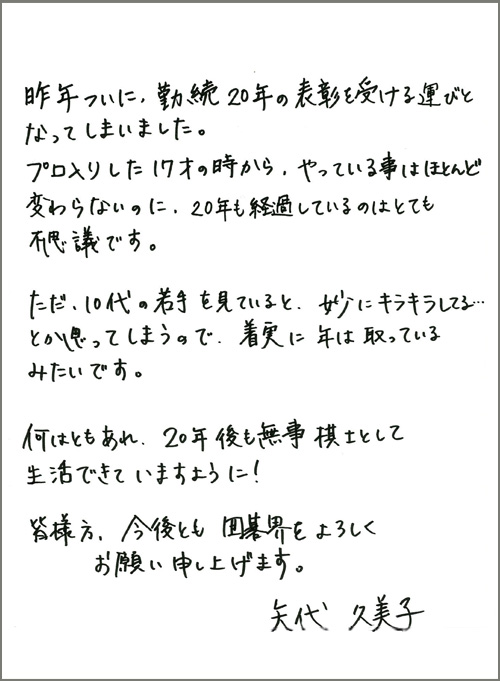 昨年ついに、勤続20年の表彰を受ける運びと
なってしまいました。
プロ入りした17才の時から、やっている事はほとんど
変わらないのに、20年も経過しているのはとても
不思議です。
ただ、10代の若手を見ていると、妙にキラキラしてる…
とか思ってしまうので、着実に年は取っている
みたいです。
何はともあれ、20年後も無事棋士として
生活できていますように!
皆様方、今後とも囲碁界をよろしく
お願い申し上げます。
矢代 久美子